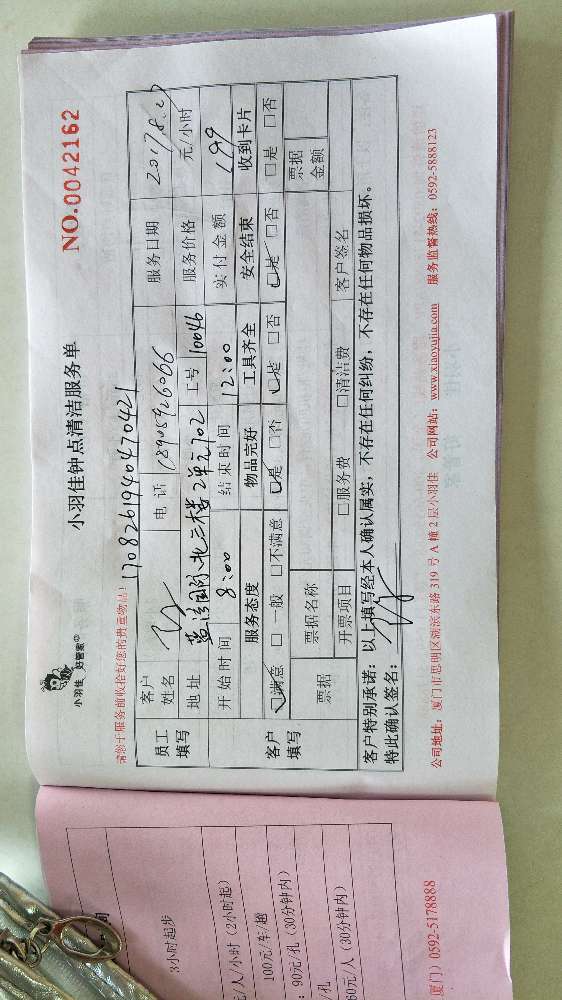 小羽佳 好管家
小羽佳钟点清洁服务单
NO.0042162
请您在服务前收拾好您的贵重物品！
1708261940470421
员工填写
客户姓名
电话
18905926066
服务日期
2017.8.27
地址
蓝湾国际北二楼2单元702
工号
10046
服务价格
元/小时
开始时间
8:00
结束时间
12:00
实付金额
199
客户填写
服务态度
物品完好
工具齐全
安全结束
收到卡片
☑满意 □一般 □不满意
☑是 □否
☑是 □否
☑是 □否
□是 □否
票据
票据名称
□服务费
□清洁费
票据金额
开票项目
客户签名
客户特别承诺：以上填写经本人确认属实，不存在任何纠纷，不存在任何物品损坏。
特此确认签名：
公司地址：厦门市思明区湖滨东路319号A幢2层小羽佳 公司网站：www.xiaoyujia.com 服务监督热线：0592-5888123
间
3小时起步
元/人/小时（2小时起）
100元/车/趟
：90元/孔（30分钟内）
/孔
60元/人（30分钟内）
厦门）0592-5178888